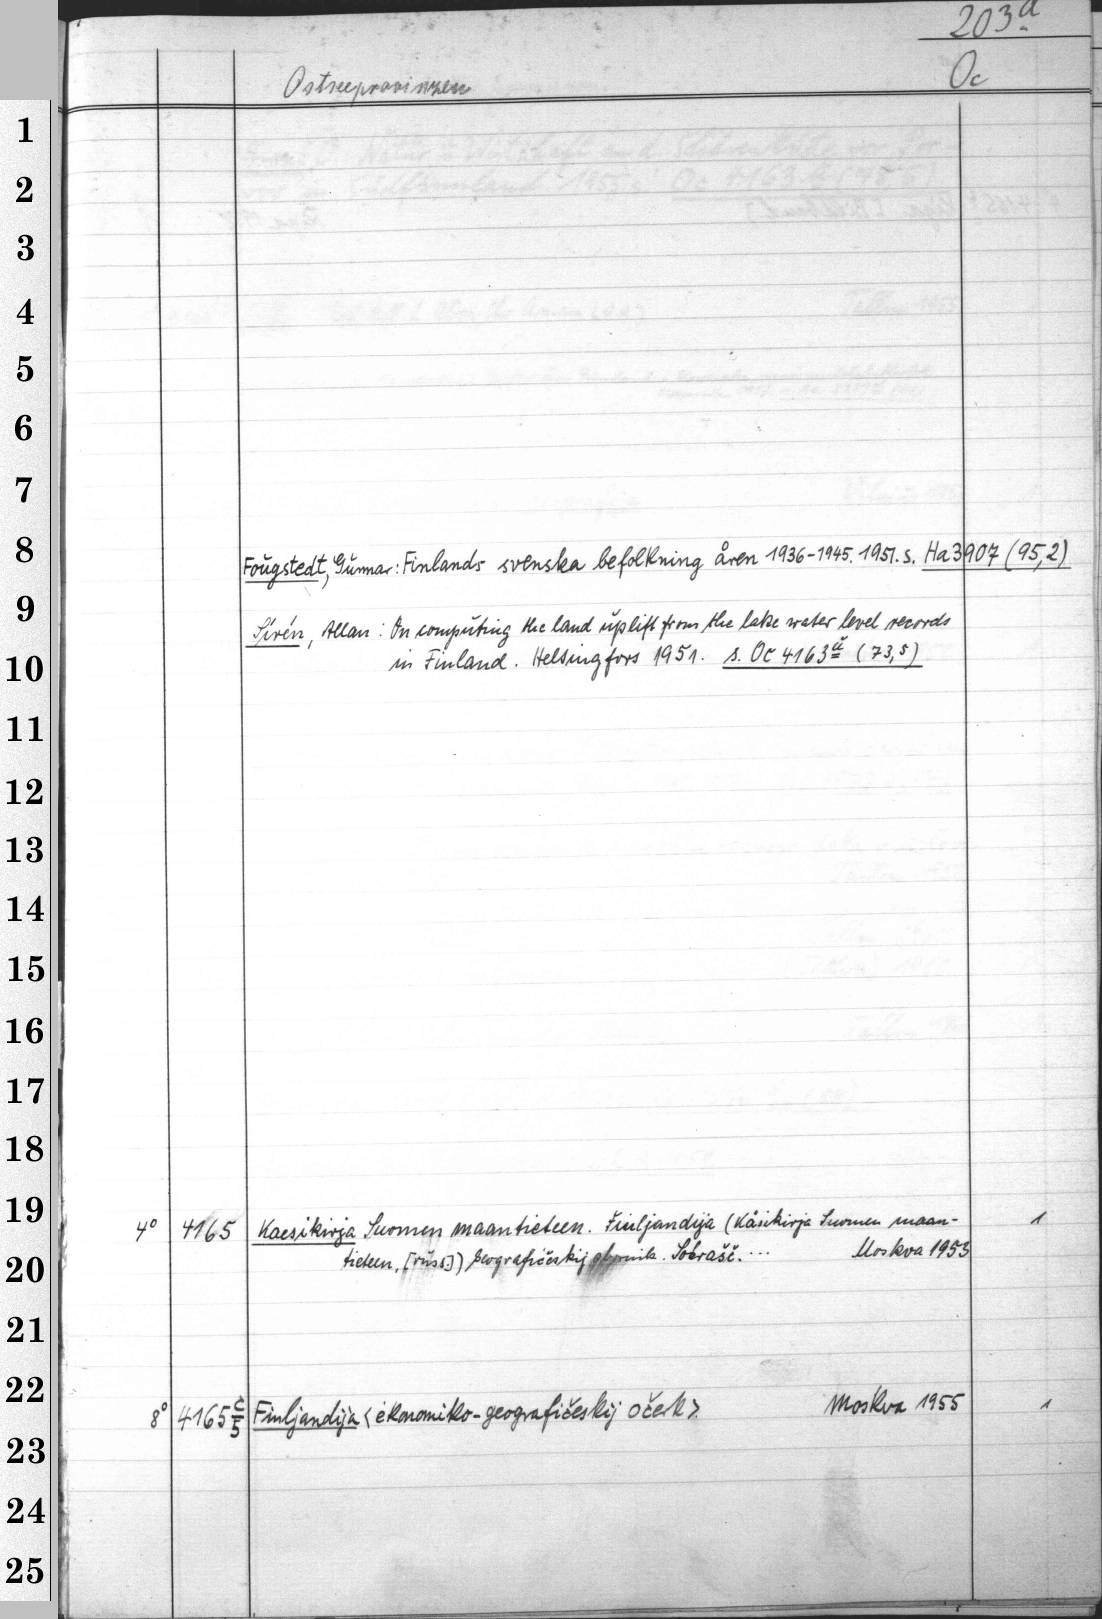 203a
Ostseeprovinzen
Oc
1
2
3
4
5
6
7
8
Fougstedt, Gunnar: Finlands svenska befolkning åren 1936-1945. 1951. s. Ha 3907 (95,2)
9
Sirén, Allan: On computing the land uplift from the lake water level records
in Finland. Helsingfors 1951. s. Oc 4163 a (73,5)
10
11
12
13
14
15
16
17
18
19
4° 4165 Kaesikirja Suomen maantieteen. Finljandija (Käsikirja Suomen maan- 1
tieteen, [russ.]) Geografičeskij sbornik. Sobrašč. ... Moskva 1953
20
21
22
8° 4165 c/5 Finljandija <ėkonomiko-geografičeskij očerk> Moskva 1955 1
23
24
25